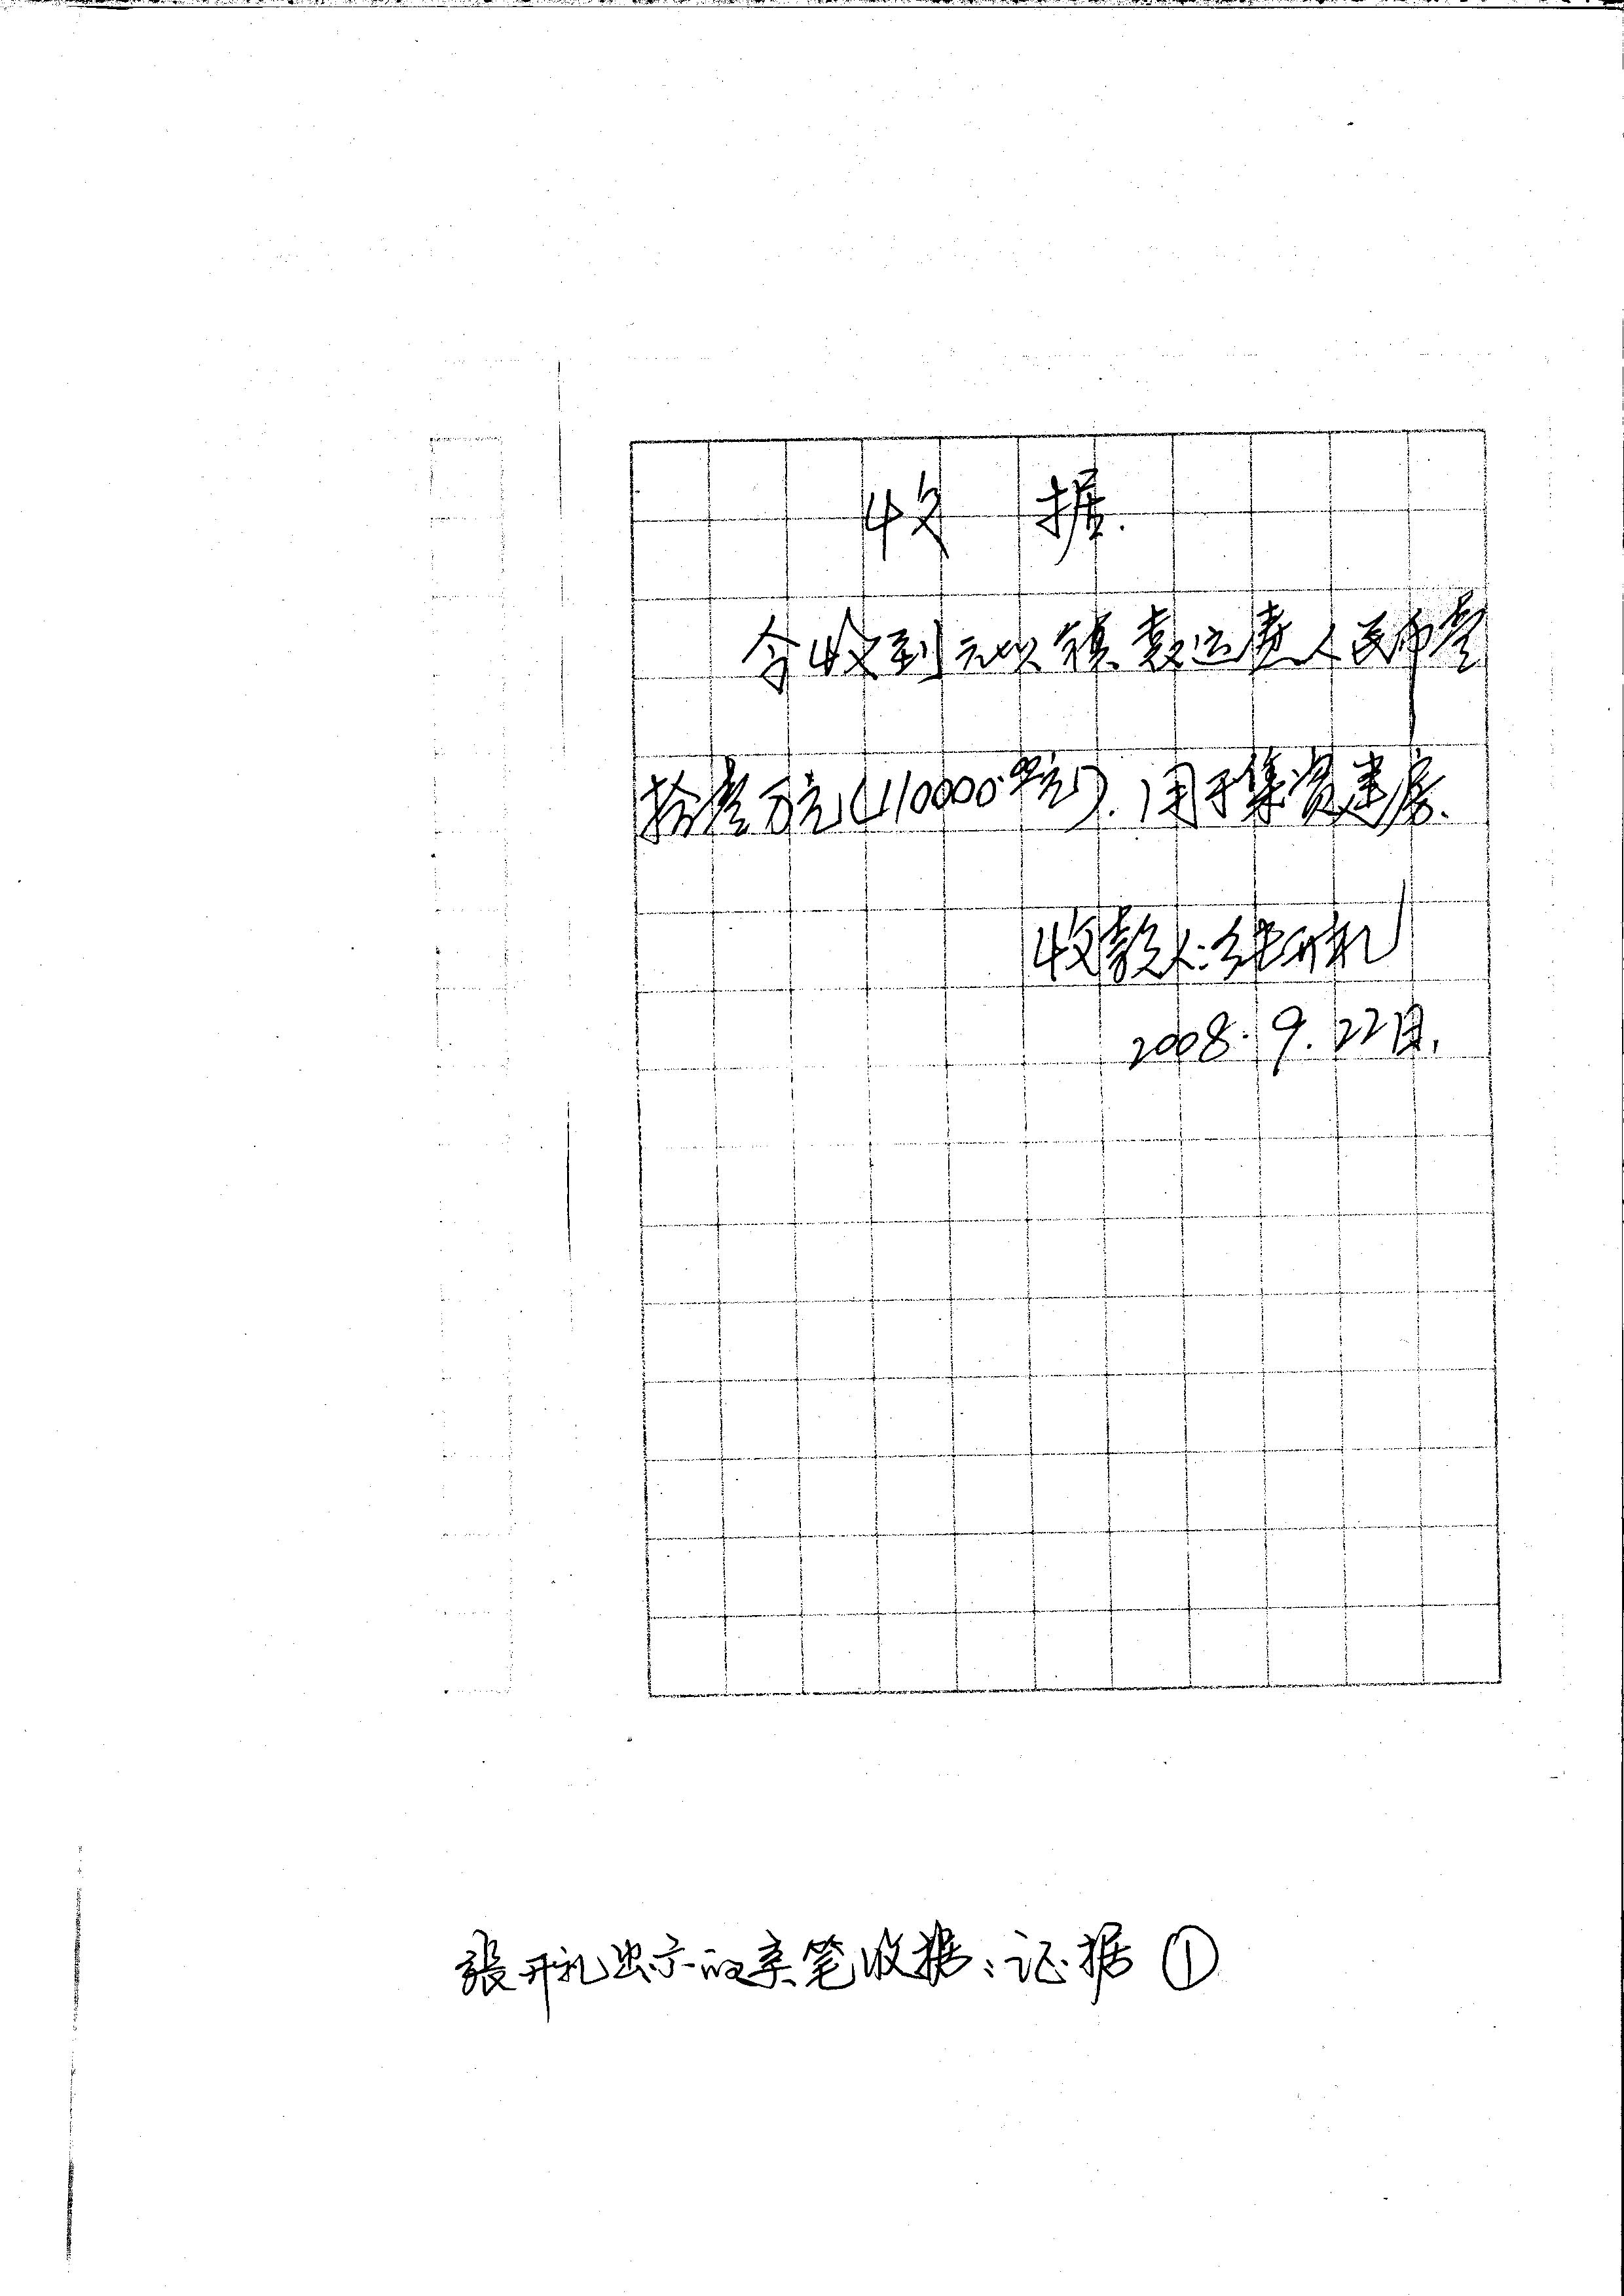 收 据.
今收到 人民币壹
拾壹万元(110000.00元).用于集资建房.
收款人:张开礼
2008.9.22日.
张开礼出示的亲笔收据:证据①